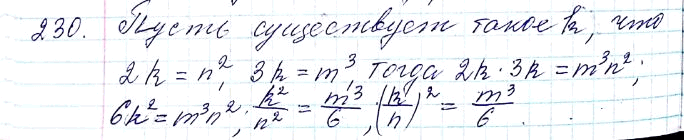 230. Пусть существует такое k, что
2k = n², 3k = m³, тогда 2k · 3k = m³n²;
6k² = m³n²; k²/n² = m³/6, (k/n)² = m³/6.